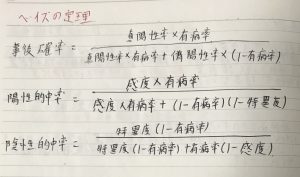 ベイズの定理
事後確率 = 真陽性率 * 有病率 / 真陽性率 * 有病率 + 偽陽性率 * (1-有病率)
陽性的中率 = 感度 × 有病率 / 感度 × 有病率 + (1-有病率)(1-特異度)
陰性的中率 = 特異度(1-有病率) / 特異度(1-有病率) + 有病率(1-感度)